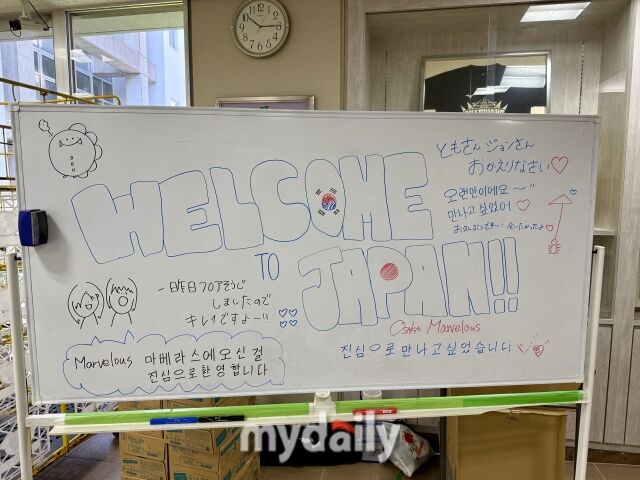 WELCOME
TO
JAPAN!!
ともさん ジョンさん
おかえりなさい♡
오랜만이에요~~
만나고싶었어♡
一昨日フロアそうじ
しましたので
キレイですよー!!
Osaka Marvelous
진심으로 만나고싶었습니다
Marvelous 마베라스에오신 걸
진심으로환영합니다
mydaily